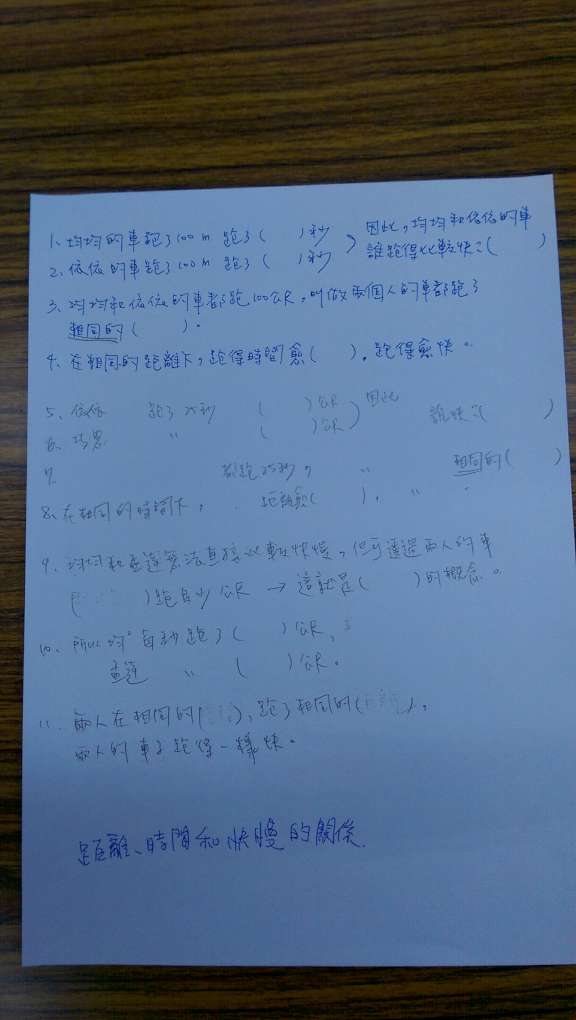 1. 均均的車跑了100m 跑了(    )秒
2. 依依的車跑了100m 跑了(    )秒
因此,均均和依依的車
誰跑得比較快?(    )
3. 均均和依依的車都跑100公尺,叫做兩個人的車都跑了
相同的(    )。
4. 在相同的距離下,跑得時間愈(    ),跑得愈快。
5. 依依 跑了25秒 (    )公尺 因此 誰快?(    )
6. 〃 (    )公尺
7. 都跑25秒, 〃 相同的(    )
8. 在相同的時間下, 距離愈(    ), 〃 。
9. 均均和孟蓮無法直接比較快慢,但可透過兩人的車
(    )跑多少公尺 → 這就是(    )的概念。
10. 所以均均自動跑了(    )公尺,
孟蓮 〃 (    )公尺。
11. 兩人在相同的(    ),跑了相同的(    ),
兩人的車子跑得一樣快。
距離、時間和快慢的關係